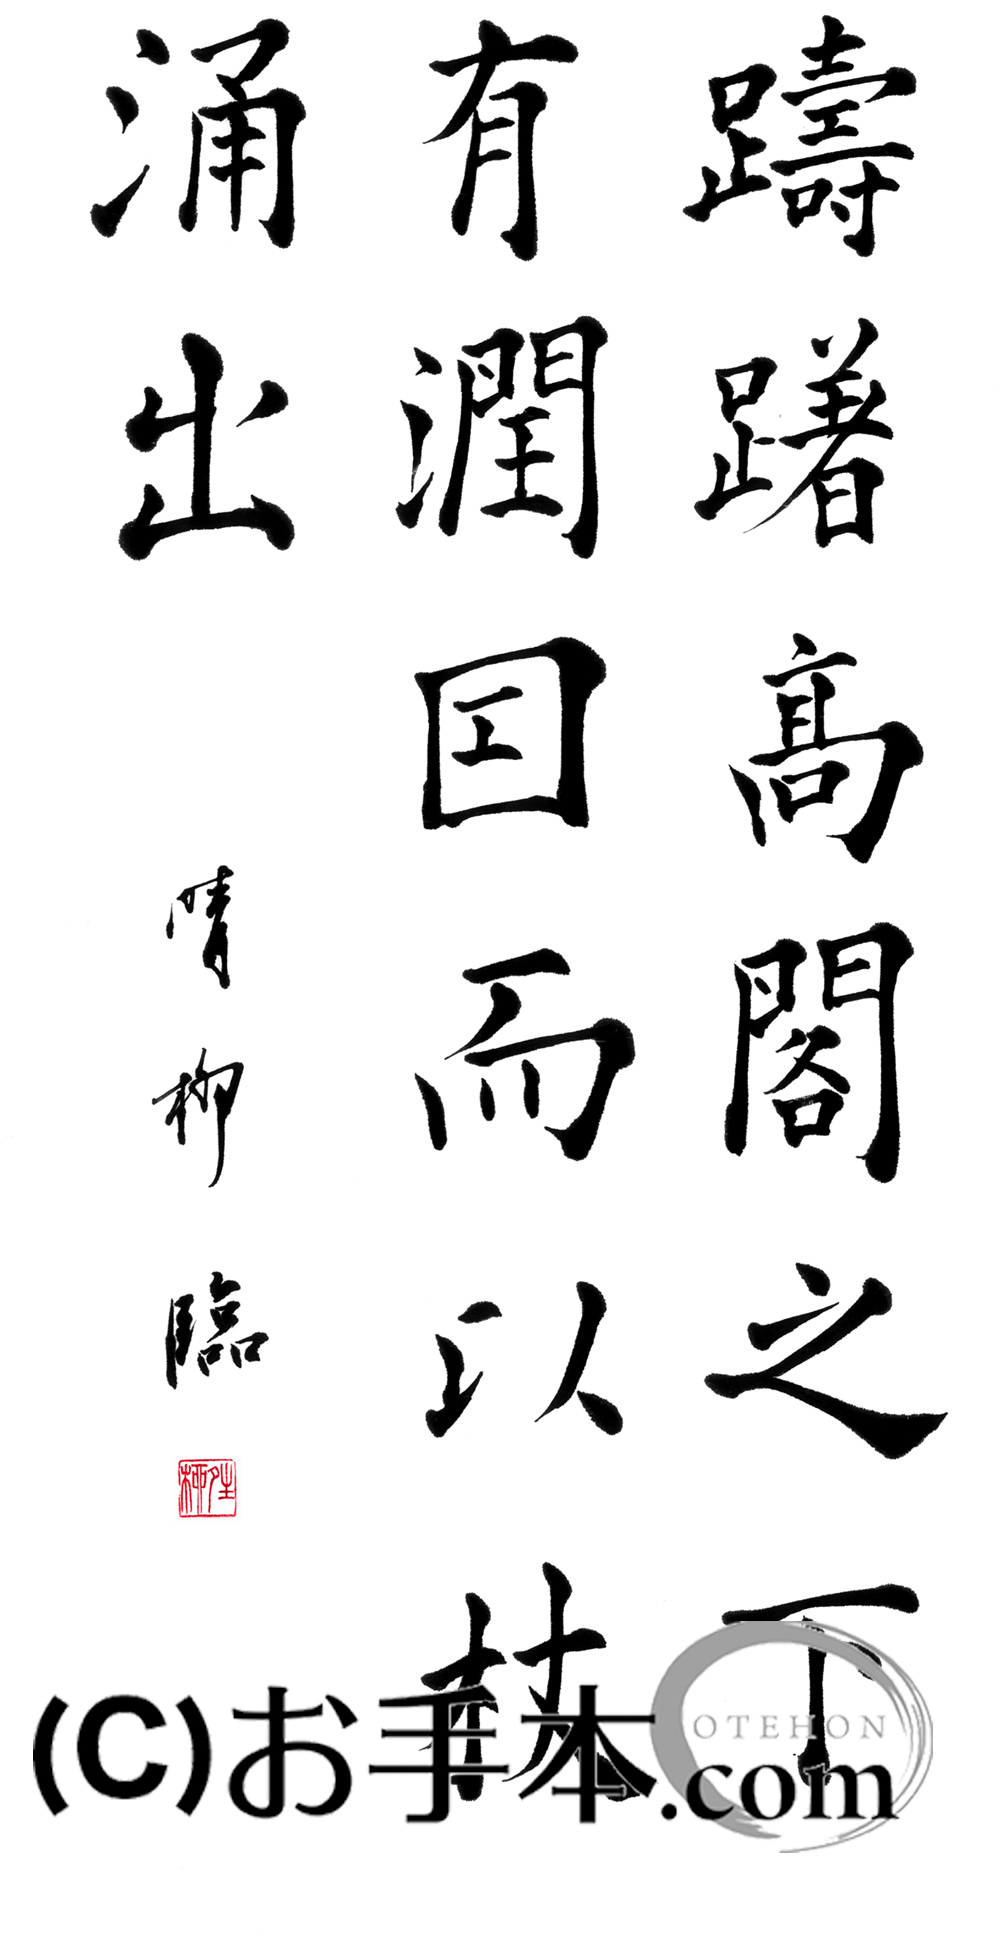 躊躇髙閣之下
有潤囙而以杖
涌出
晴柳臨
(C)お手本.com
OTEHON